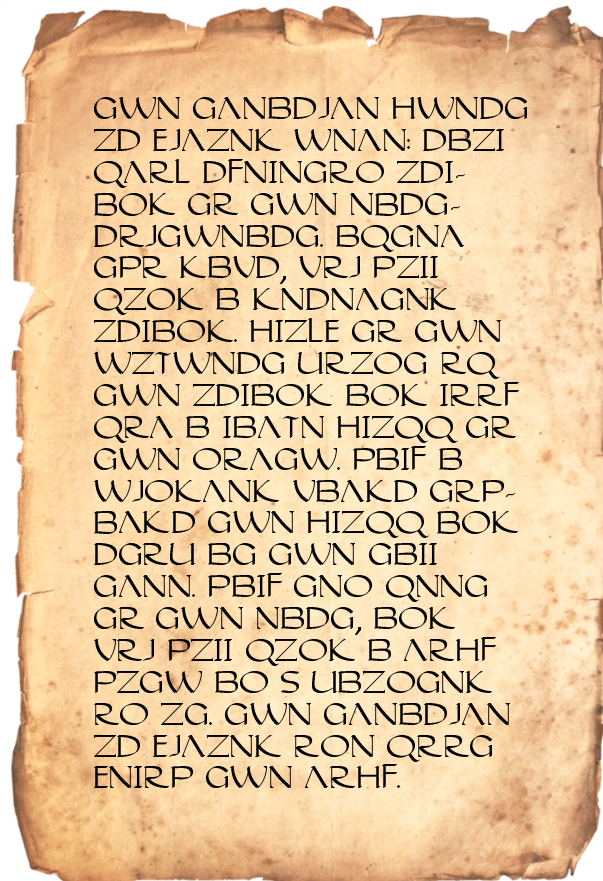 GWN GANBDJAN HWNDG
ZD EJAZNK WNAN: DBZI
QARL DFNINGRO ZDI-
BOK GR GWN NBDG-
DRJGWNBDG. BQGNA
GPR KBVD, VRJ PZII
QZOK B KNDNAGNK
ZDIBOK. HIZLE GR GWN
WZTWNDG URZOG RQ
GWN ZDIBOK BOK IRRF
QRA B IBATN HIZQQ GR
GWN ORAGW. PBIF B
WJOKANK VBAKD GRP-
BAKD GWN HIZQQ BOK
DGRU BG GWN GBII
GANN. PBIF GNO QNNG
GR GWN NBDG, BOK
VRJ PZII QZOK B ARHF
PZGW BO S UBZOGNK
RO ZG. GWN GANBDJAN
ZD EJAZNK RON QRRG
ENIRP GWN ARHF.